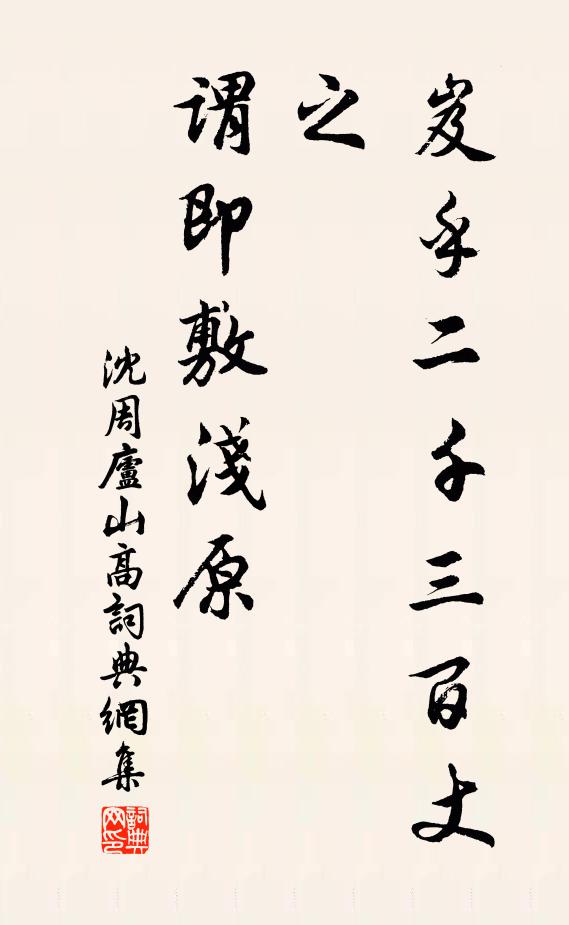 岌乎二千三百丈
之
謂即敷淺原
沈周廬山高詞典網集
詞典网印